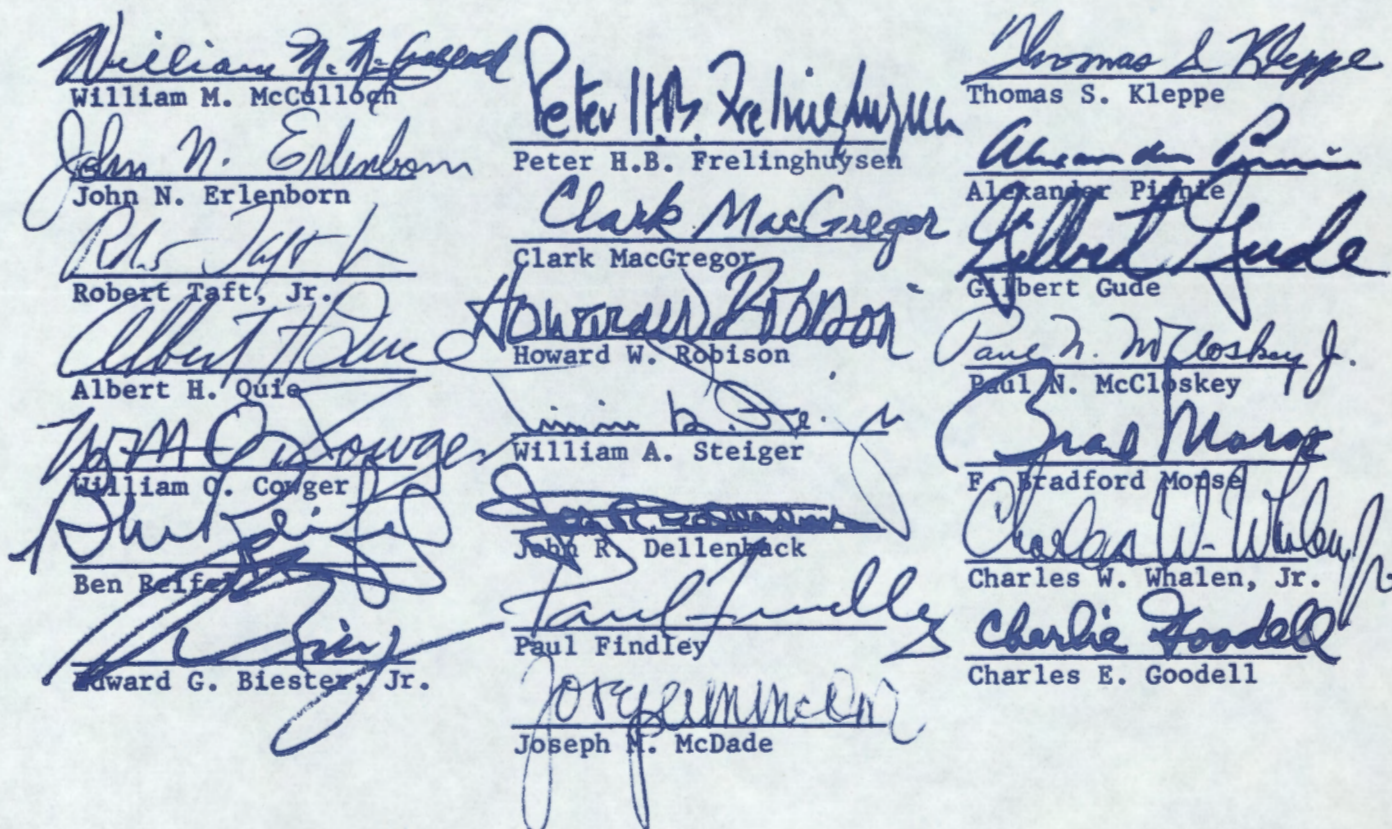 William M. McCulloch
William M. McCulloch
John N. Erlenborn
John N. Erlenborn
Robt Taft Jr
Robert Taft, Jr.
Albert H Quie
Albert H. Quie
Wm O. Cowger
William O. Cowger
Ben Reifel
Ben Reifel
Edward G. Biester, Jr.
Peter H.B. Frelinghuysen
Peter H.B. Frelinghuysen
Clark MacGregor
Clark MacGregor
Howard W Robison
Howard W. Robison
William A. Steiger
John R. Dellenback
John R. Dellenback
Paul Findley
Paul Findley
Joseph M. McDade
Thomas S Kleppe
Thomas S. Kleppe
Alexander Pirnie
Alexander Pirnie
Gilbert Gude
Gilbert Gude
Paul N. McCloskey Jr.
Paul N. McCloskey
Brad Morse
F. Bradford Morse
Charles W. Whalen, Jr.
Charles W. Whalen, Jr.
Charlie Goodell
Charles E. Goodell